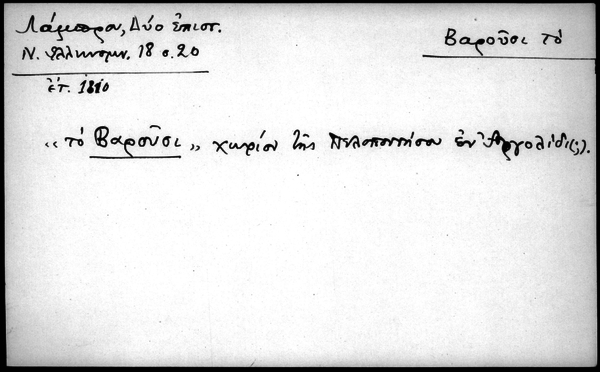 Λάμπρου, Δύο ἐπιστ.
Ν. Ἑλληνομν. 18 σ. 20
ἐτ. 1810
Βαροῦσι τὸ
«τὸ Βαροῦσι» χωρίον τῆς Πελοποννήσου ἐν Ἀργολίδι(;).